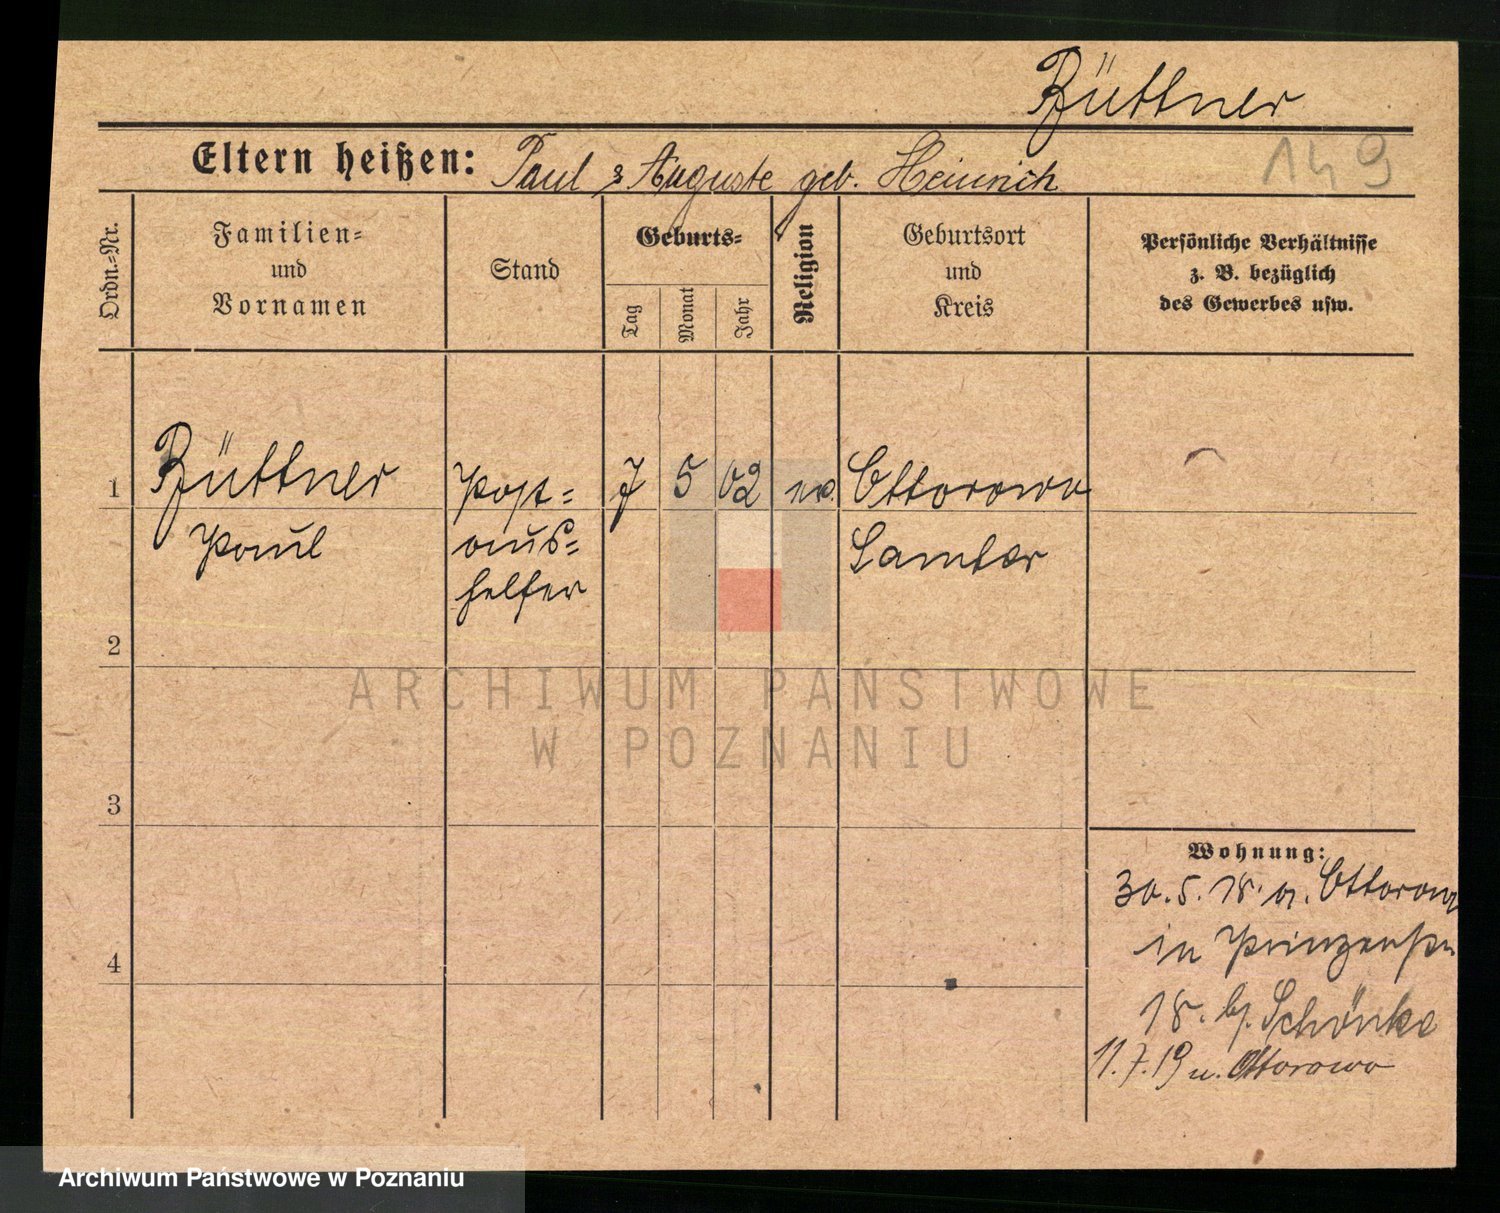 Büttner
Eltern heißen: Paul & Auguste geb. Heinrich
149
Ordn.-Nr.
Familien-
und
Vornamen
Stand
Geburts-
Tag
Monat
Jahr
Religion
Geburtsort
und
Kreis
Persönliche Verhältnisse
z. B. bezüglich
des Gewerbes usw.
1
Büttner
Paul
Post-
aus-
helfer
7
5
02
ev.
Ottorowo
Samter
2
3
4
Wohnung:
30.5.18. a. Ottorowo
in Prinzenstr
18. b. Schönke
11.7.19 n. Ottorowo
ARCHIWUM PAŃSTWOWE
W POZNANIU
Archiwum Państwowe w Poznaniu